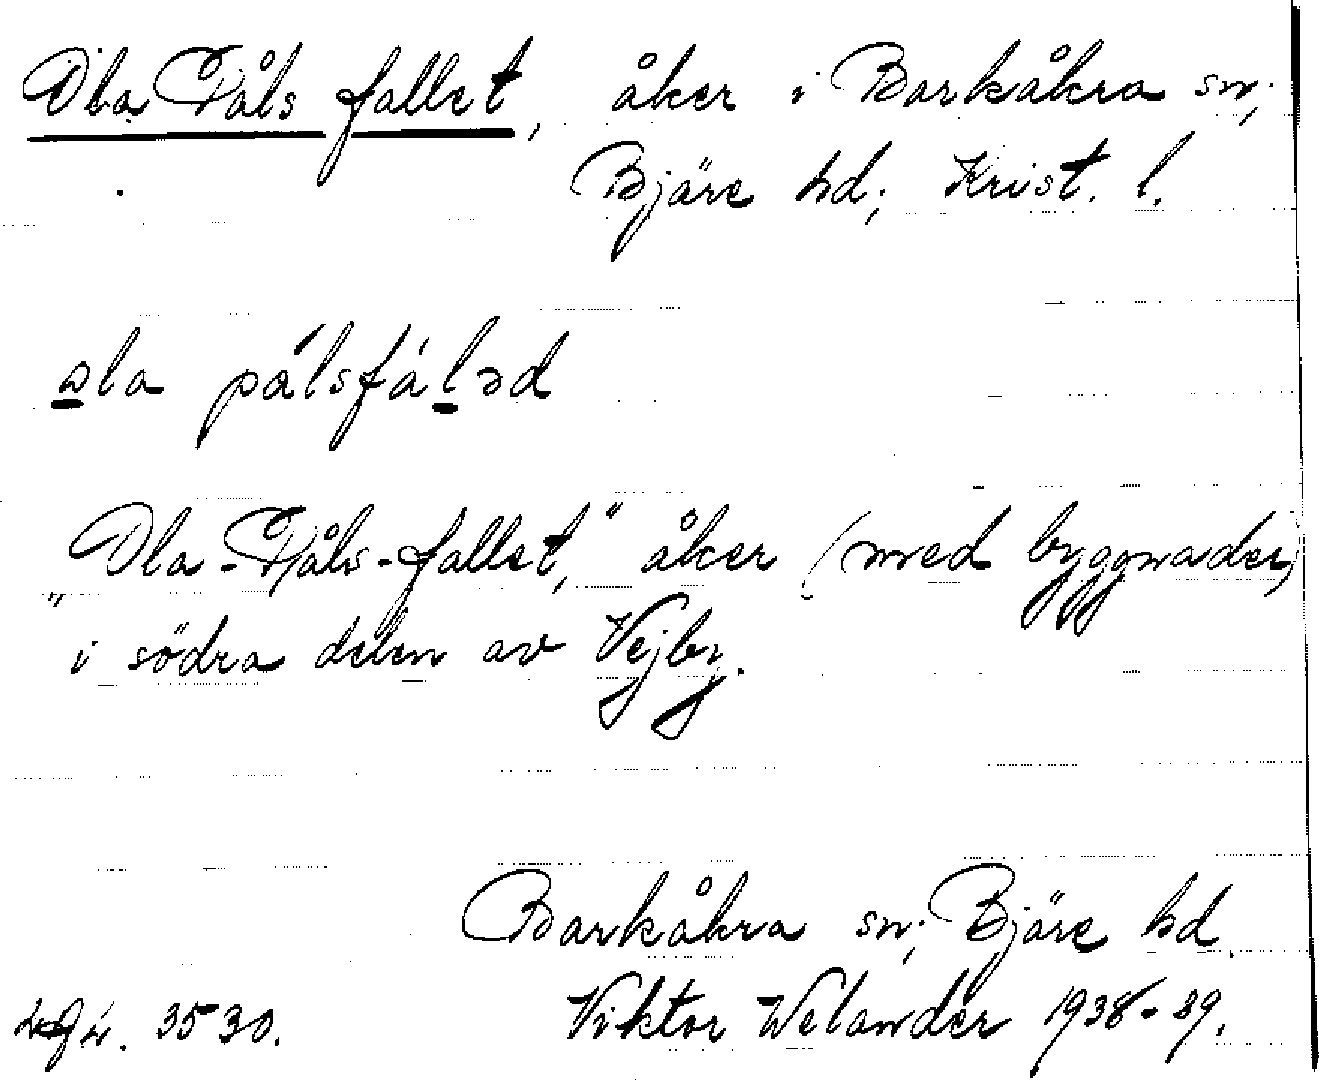 Ola Påls fallet, åker i Barkåkra sn;
Bjäre hd; Krist. l.
ola pålsfáləd
„Ola-Påls-fallet," åker (med byggnader)
i södra delen av Vejby.
Barkåkra sn; Bjäre hd.
Viktor Welander 1938-39.
3530.